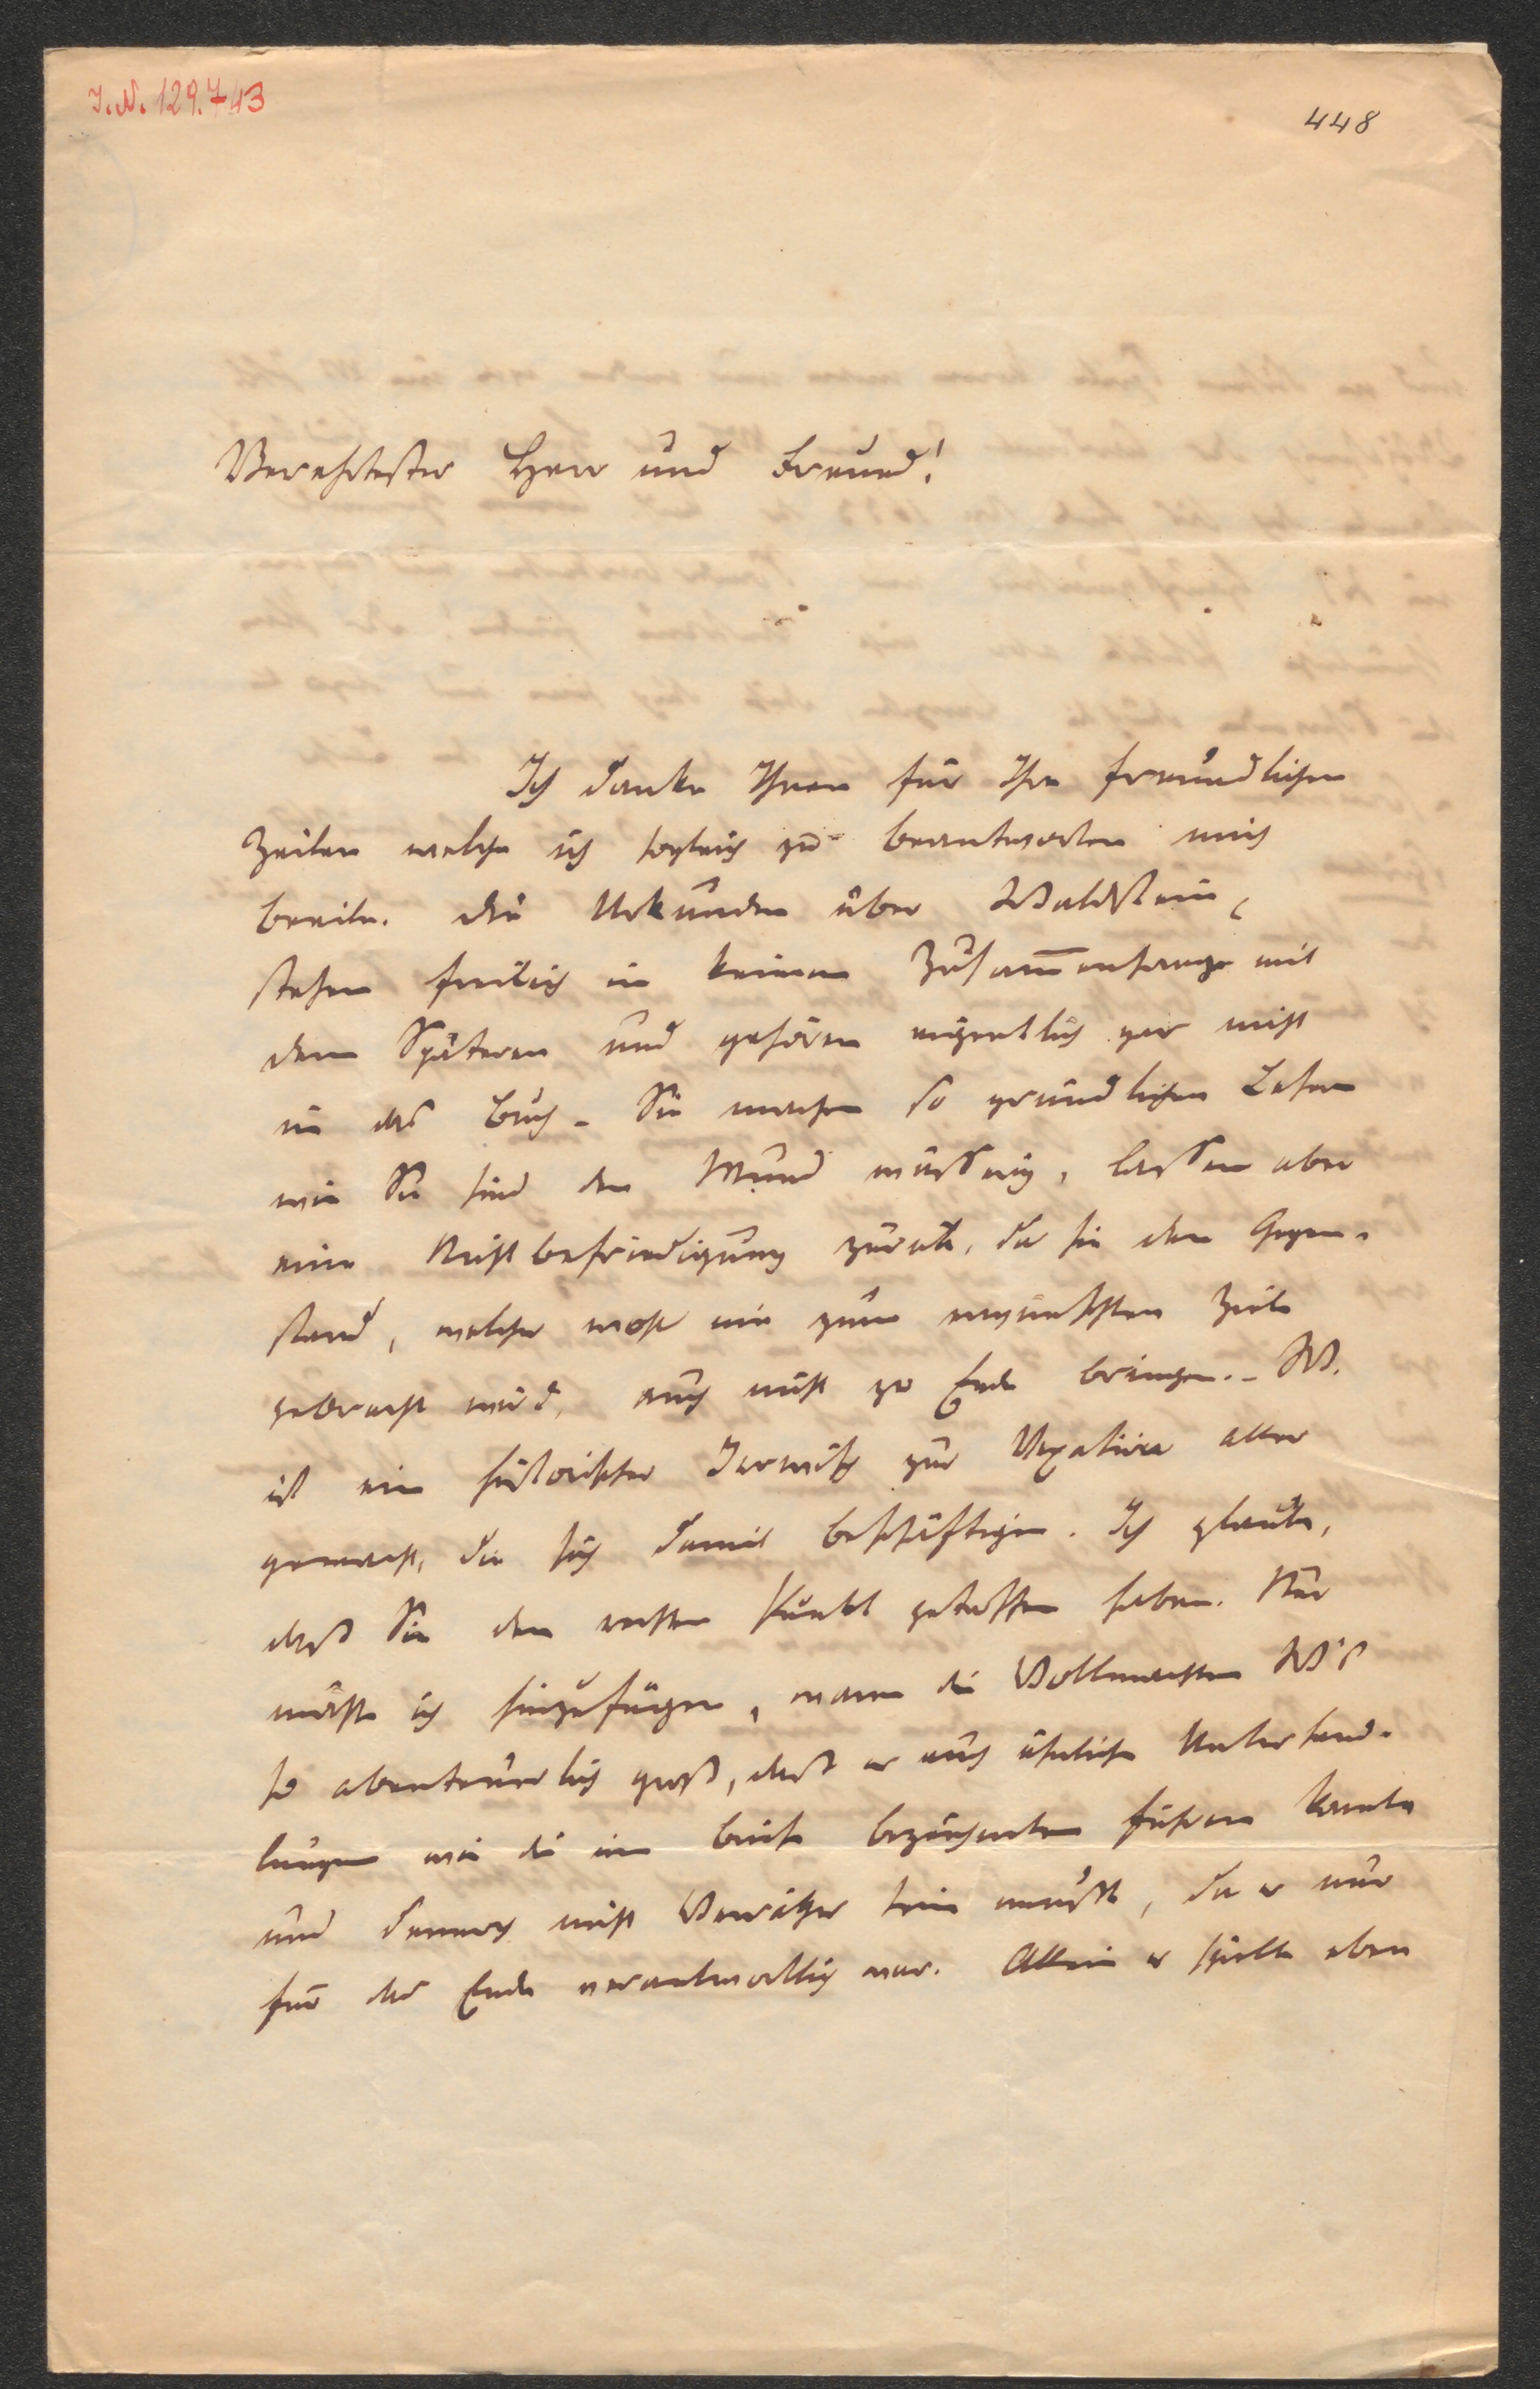 I.N. 129.743
448
Verehrtester Herr und Freund!
Ich danke Ihnen für Ihre freundlichen
Zeilen welche ich sogleich zu beantworten mich
beeile. Die Urkunden über Waldstein,
stehen freilich in keinem Zusam̅enhange mit
dem Späteren und gehören eigentlich gar nicht
in das Buch. Sie machen so gründlichen Lesern
wie Sie sind den Mund wässerig, lassen aber
eine Nichtbefriedigung zurück, da sie den Gegen-
stand, welcher wohl nie zum erwünschten Ziele
gebracht wird, auch nicht zu Ende bringen. - W.
ist ein historischer zur Vexatur aller
gemacht, die sich damit beschäftigen. Ich glaube,
daß Sie den rechten Punkt getroffen haben. Nur
möchte ich hinzufügen, waren die Vollmachten W's
so abenteuerlich groß, daß er auch ähnliche Unterhand-
lungen wie die im Briefe bezeichneten führen konnte
und dennoch nicht Verräther sein mußte, da er nur
für das Ende verantwortlich war. Allein er spielte eben